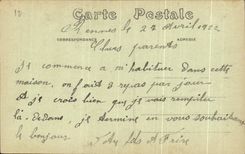 12
Carte Postale
Rennes le 22 Avril 1922
CORRESPONDANCE
ADRESSE
Chers parents
Je commence a m'habituer dans cette
maison, on fait 3 repas par jour
et je crois bien que je vais rempiler
la-dedans, je termine en vous souhaitant
le bonjour